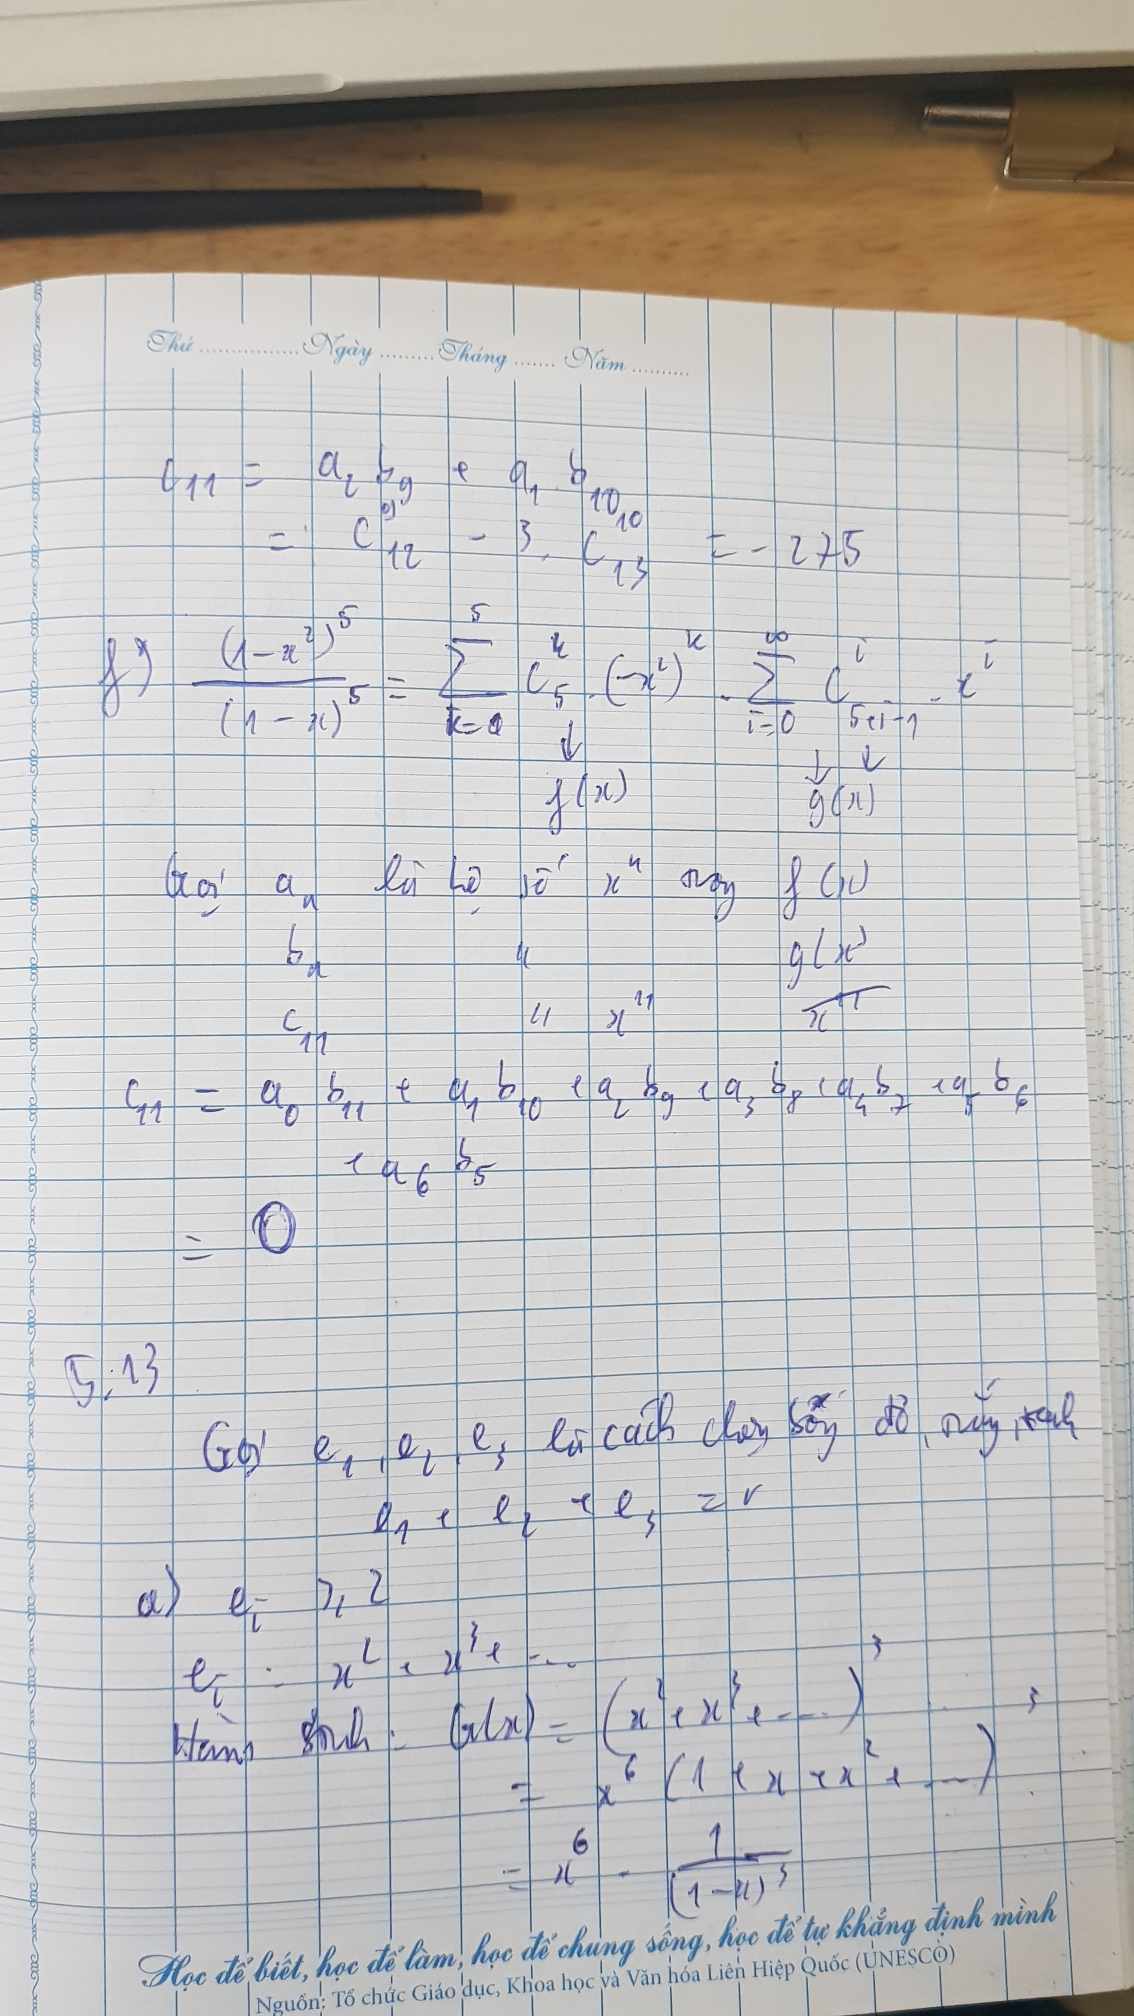 Thứ ................ Ngày ......... Tháng ....... Năm ..........
c₁₁ = a₂ b₉ + a₁ b₁₀
= C₁₂⁹ - 3 . C₁₃¹⁰ = - 275
f) (1-x²)⁵ / (1-x)⁵ = Σ_{k=0}^{5} C₅ᵏ . (-x²)ᵏ . Σ_{i=0}^{∞} C_{5+i-1}^{i} . xⁱ
↓ ↓ ↓
f(x) g(x)
Gọi aₙ là hệ số xⁿ trong f(x)
bₙ " g(x)
c₁₁ " x¹¹
c₁₁ = a₀ b₁₁ + a₁ b₁₀ + a₂ b₉ + a₃ b₈ + a₄ b₇ + a₅ b₆
+ a₆ b₅
= 0
5.13
Gọi e₁, e₂, e₃ là cách chọn đỏ, xanh
e₁ + e₂ + e₃ = r
a) eᵢ ≥ 2
eᵢ : x² + x³ + ...
Hàm sinh : G(x) = (x² + x³ + ...)³
= x⁶ (1 + x + x² + ...)³
= x⁶ . 1 / (1-x)³
Học để biết, học để làm, học để chung sống, học để tự khẳng định mình
Nguồn: Tổ chức Giáo dục, Khoa học và Văn hóa Liên Hiệp Quốc (UNESCO)